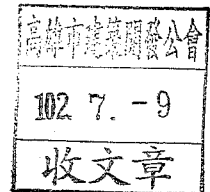 高雄市建築開發公會
102. 7. -9
收文章